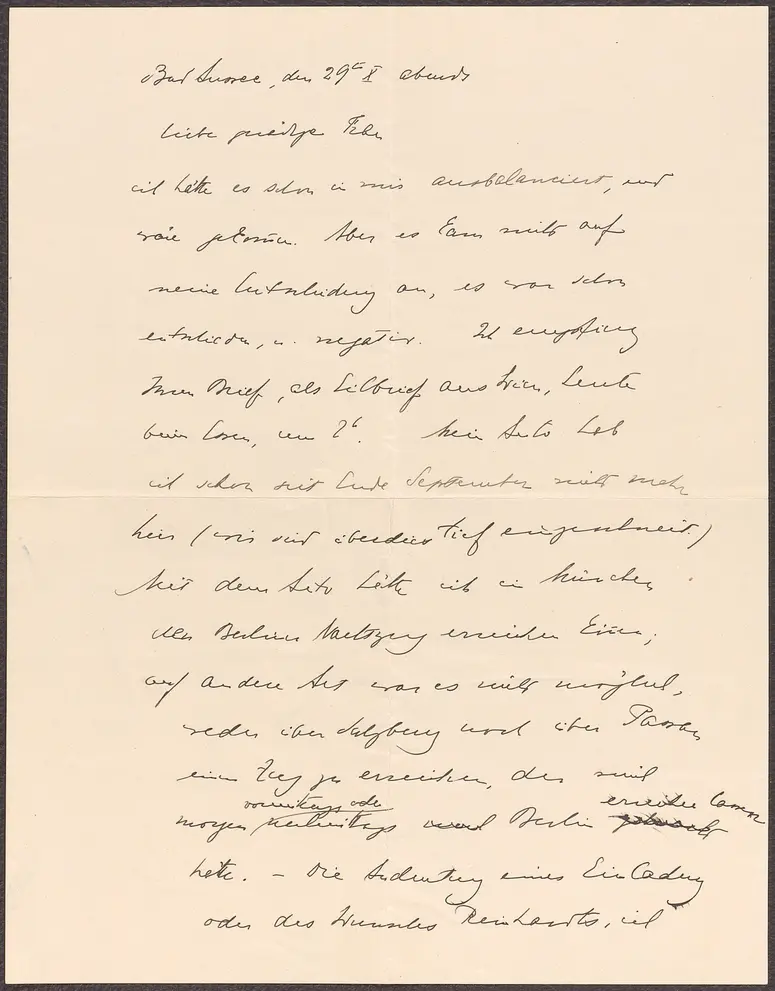 Bad Aussee, den 29ten X abends
liebe gnädige Frau
ich hätte es schon in mir ausbalanciert, und
wäre gekommen. Aber es kam nicht auf
meine Entscheidung an, es war schon
entschieden, u. negativ. Ich empfing
Ihren Brief, als Eilbrief aus Wien, heute
beim Essen, um 2h. Mein Auto hab
ich schon seit Ende September nicht mehr
hier (wir sind überdies tief eingeschneit.)
Mit dem Auto hätte ich in München
den Berliner Nachtzug erreichen können;
auf andere Art war es nicht möglich,
weder über Salzburg noch über Passau
einen Zug zu erreichen, der mich
vormittags oder erreichen lassen
morgen nachmittags Berlin
hätte. – Die Andeutung einer Einladung
oder des Wunsches Reinhardts, ich